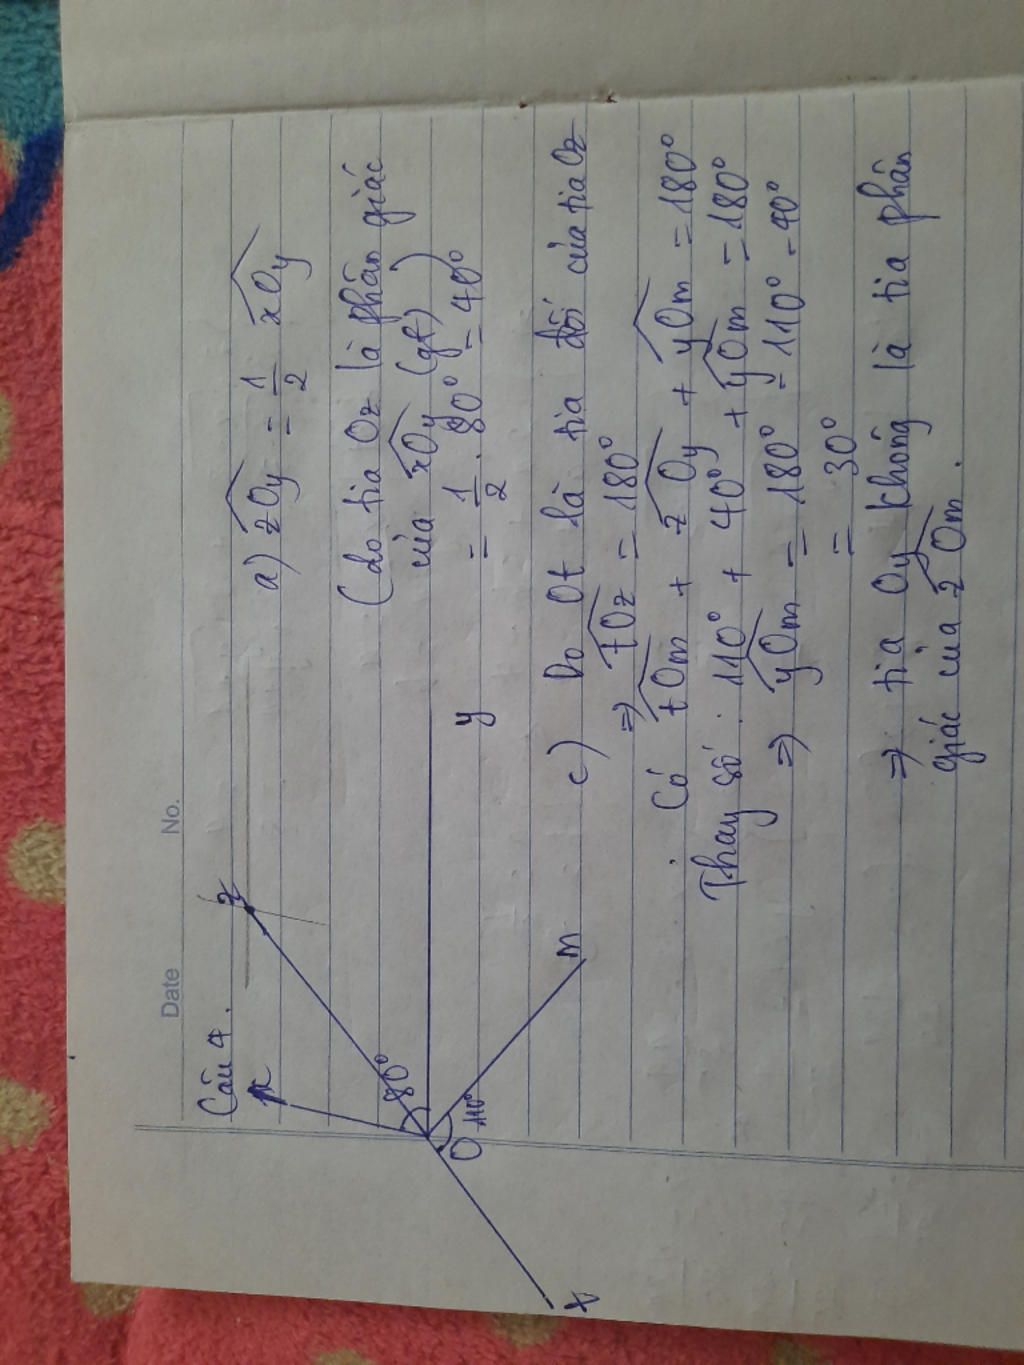 Date No.
Câu 4.
x
z
80°
O
110°
y
m
t
a) zOy = 1/2 xOy
(do tia Oz là phân giác
của xOy (gt) )
= 1/2 . 80° = 40°
c) Do Ot là tia đối của tia Oz
=) tOz = 180°
Có tOm + zOy + yOm = 180°
Thay số : 110° + 40° + yOm = 180°
=) yOm = 180° - 110° - 40°
= 30°
=) tia Oy không là tia phân
giác của zOm.